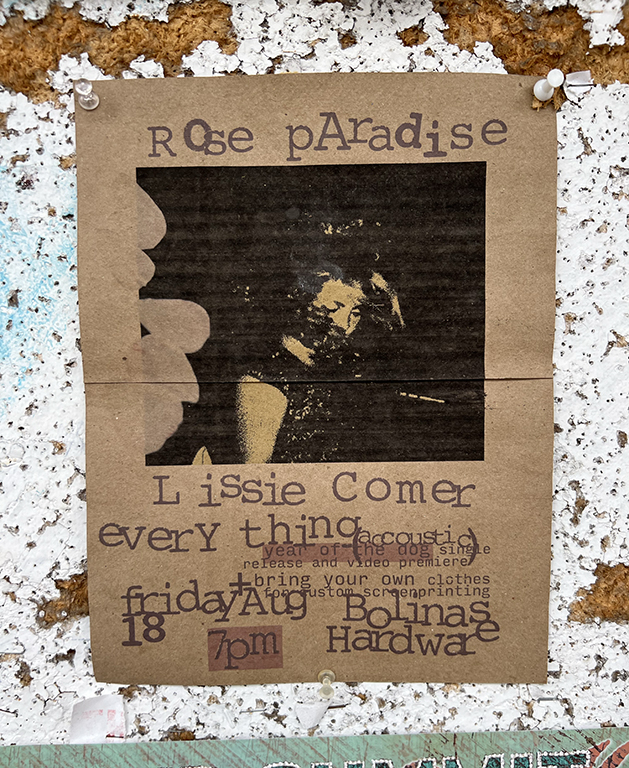 ROse pAradise
Lissie Comer
everY thing (accoustic)
year of the dog single
release and video premiere
+ bring your own clothes
for custom screenprinting
friday Aug
18
7pm
Bolinas
Hardware